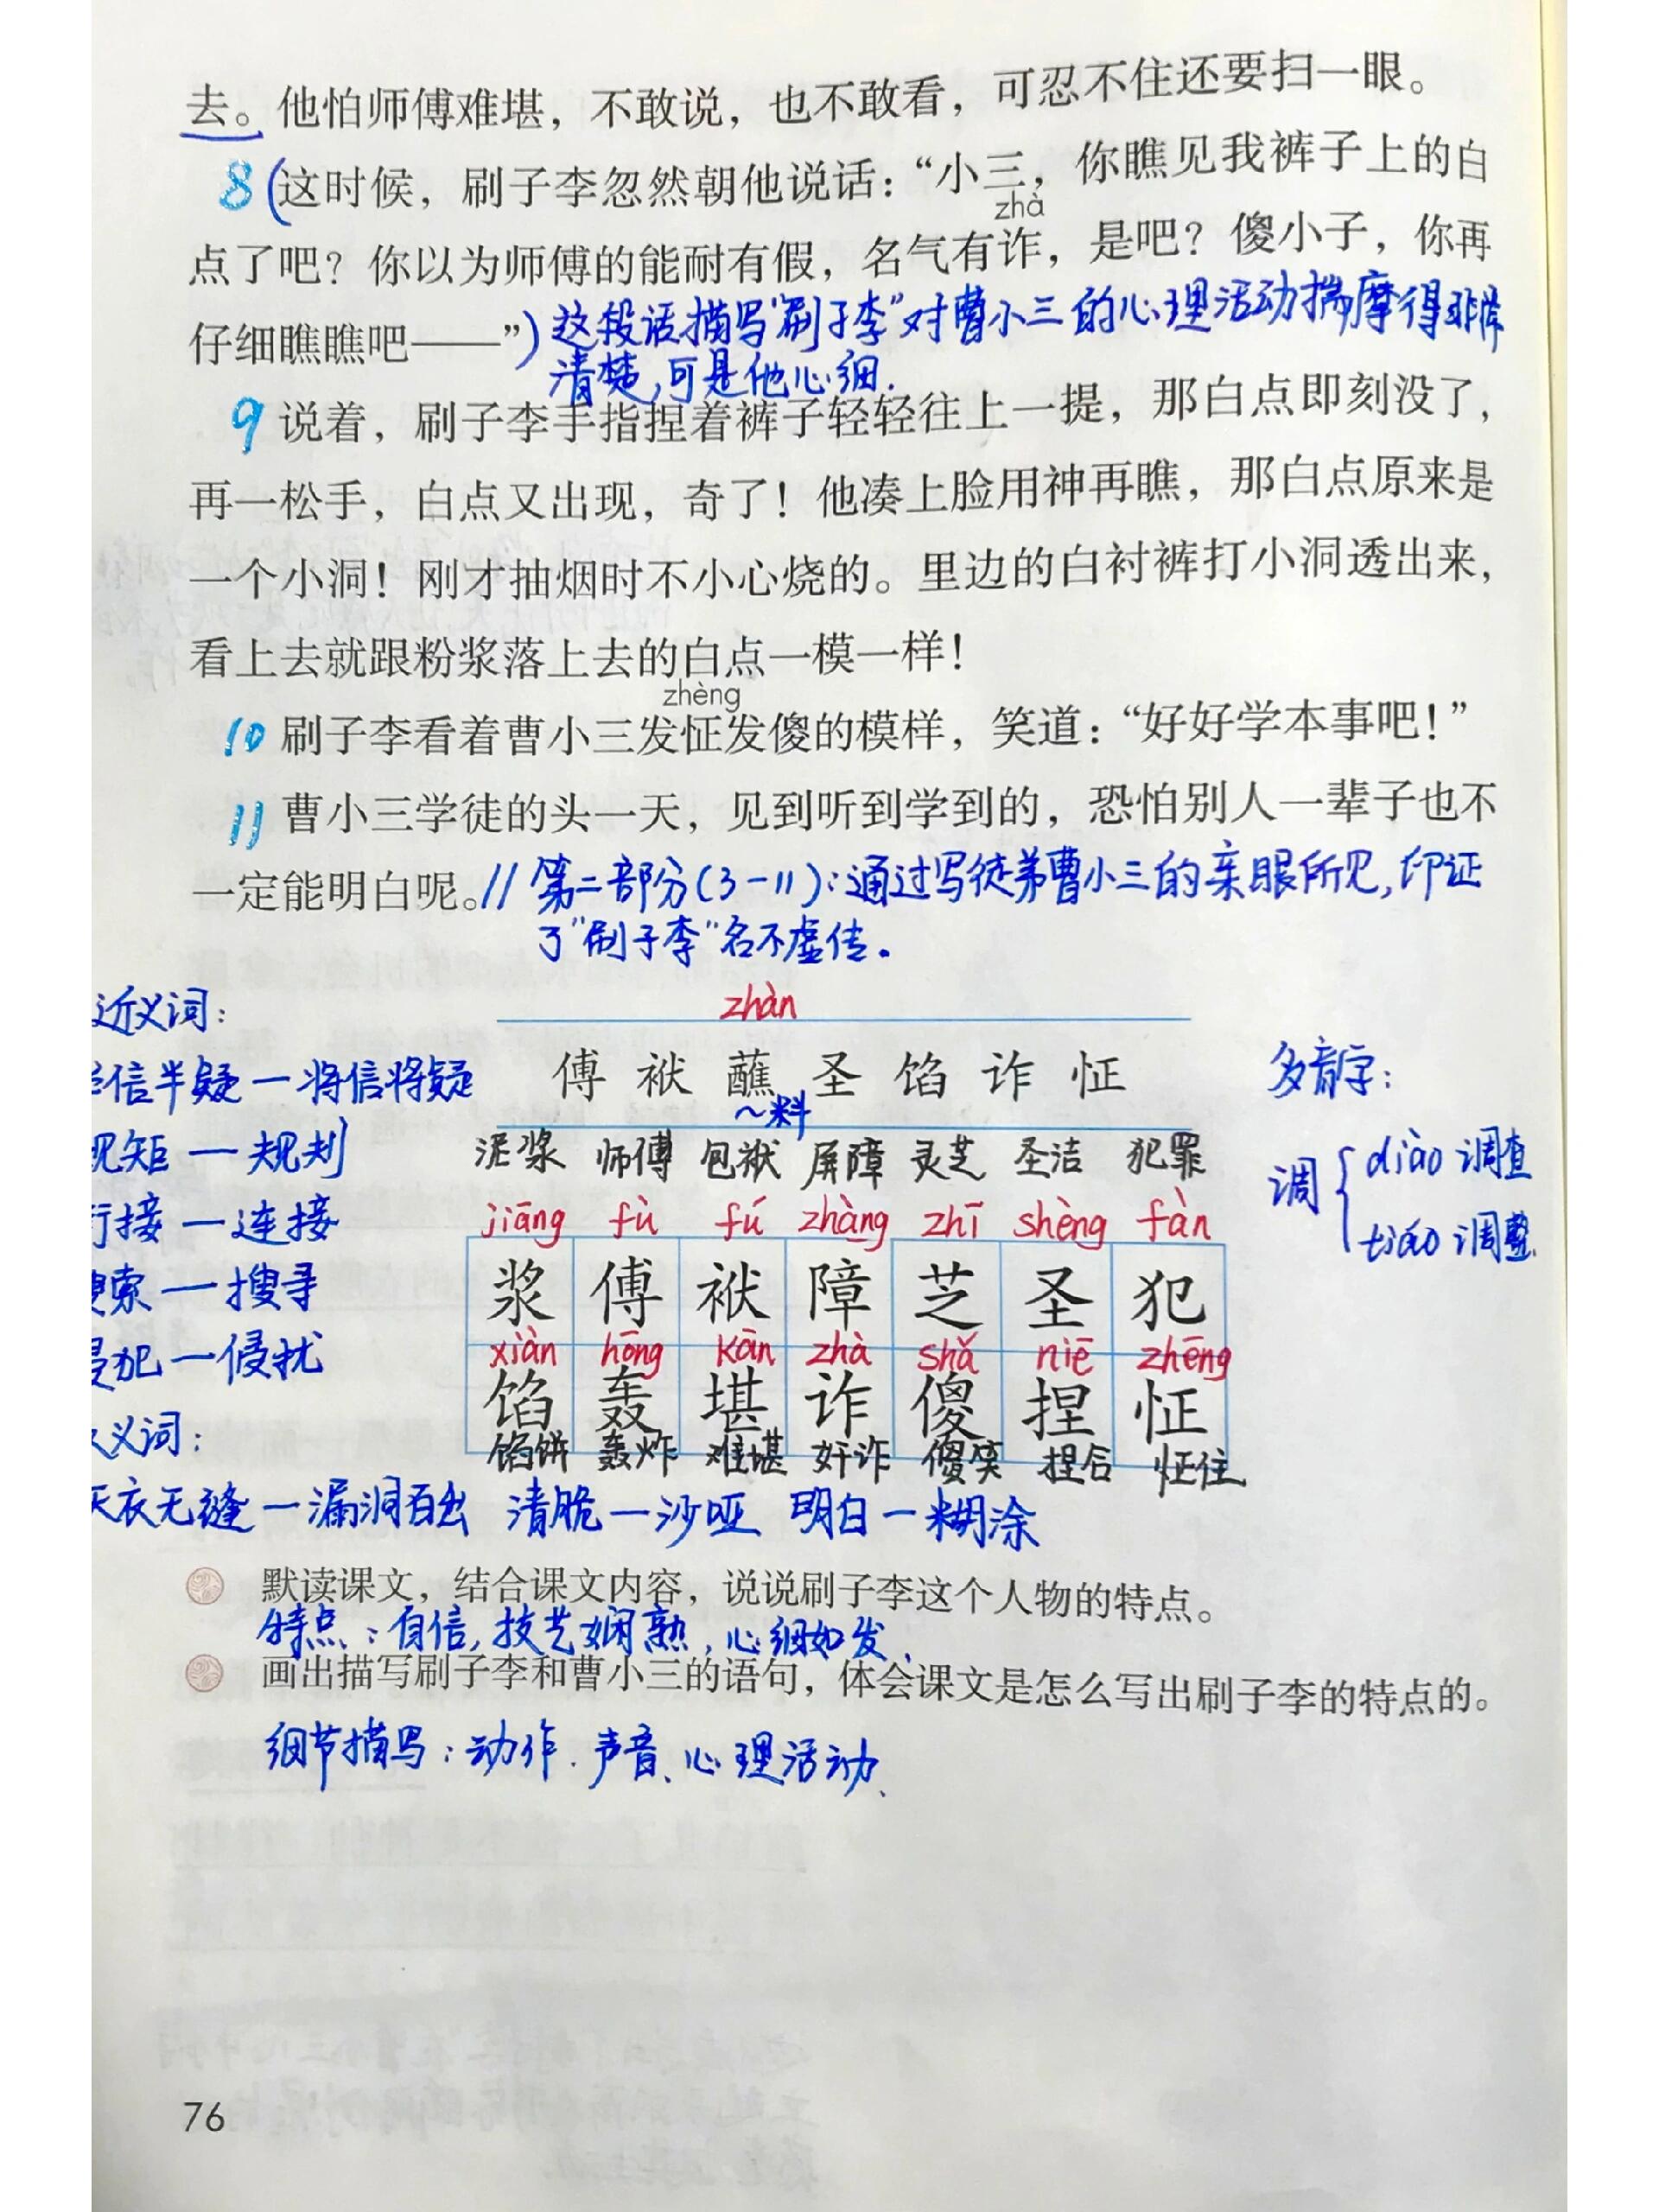 去。他怕师傅难堪，不敢说，也不敢看，可忍不住还要扫一眼。
8（这时候，刷子李忽然朝他说话：“小三，你瞧见我裤子上的白
zhà
点了吧？你以为师傅的能耐有假，名气有诈，是吧？傻小子，你再
仔细瞧瞧吧——”）这段话描写“刷子李”对曹小三的心理活动揣摩得非常
清楚，可是他心细.
9 说着，刷子李手指捏着裤子轻轻往上一提，那白点即刻没了，
再一松手，白点又出现，奇了！他凑上脸用神再瞧，那白点原来是
一个小洞！刚才抽烟时不小心烧的。里边的白衬裤打小洞透出来，
看上去就跟粉浆落上去的白点一模一样！
zhèng
10 刷子李看着曹小三发怔发傻的模样，笑道：“好好学本事吧！”
11 曹小三学徒的头一天，见到听到学到的，恐怕别人一辈子也不
一定能明白呢。// 第二部分(3-11)：通过写徒弟曹小三的亲眼所见，印证
了“刷子李”名不虚传。
近义词：
zhàn
半信半疑—将信将疑
傅 袱 蘸 圣 馅 诈 怔
～料
多音字：
规矩—规则
泥浆 师傅 包袱 屏障 灵芝 圣洁 犯罪
调 { diào 调查
tiáo 调整
衔接—连接
jiāng fù fú zhàng zhī shèng fàn
浆 傅 袱 障 芝 圣 犯
搜索—搜寻
xiàn hōng kān zhà shǎ niē zhēng
侵犯—侵扰
馅 轰 堪 诈 傻 捏 怔
反义词：
馅饼 轰炸 难堪 奸诈 傻笑 捏合 怔住
天衣无缝—漏洞百出 清脆—沙哑 明白—糊涂
默读课文，结合课文内容，说说刷子李这个人物的特点。
特点：自信，技艺娴熟，心细如发、
画出描写刷子李和曹小三的语句，体会课文是怎么写出刷子李的特点的。
细节描写：动作、声音、心理活动、
76